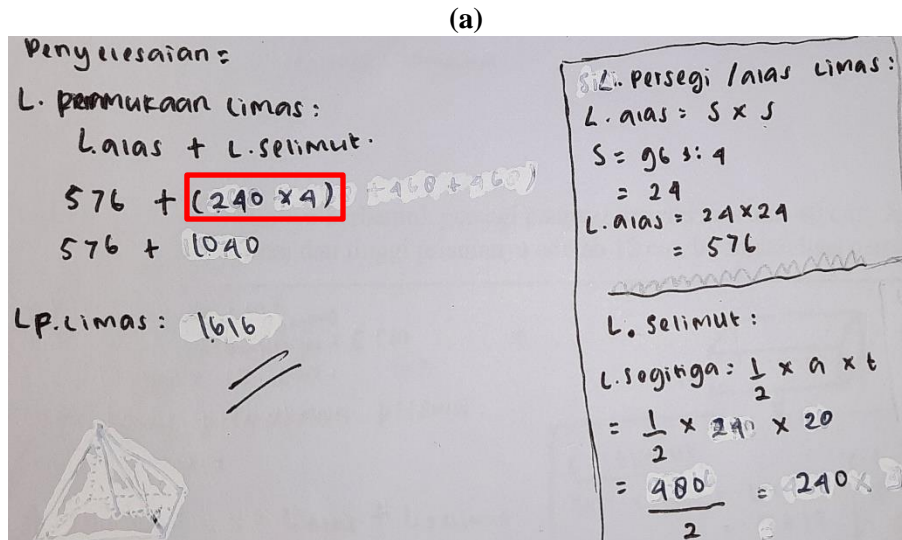 (a)
Penyelesaian:
L. permukaan Limas:
L.alas + L.selimut.
576 + (240 x 4) + 460 + 460)
576 + 1040
Lp.Limas: 1616
L. Persegi / alas Limas:
L. alas = S x S
S = 96 : 4
= 24
L.alas = 24x24
= 576
L. Selimut:
L.segitiga: 1/2 x a x t
= 1/2 x 24 x 20
= 480/2 = 240